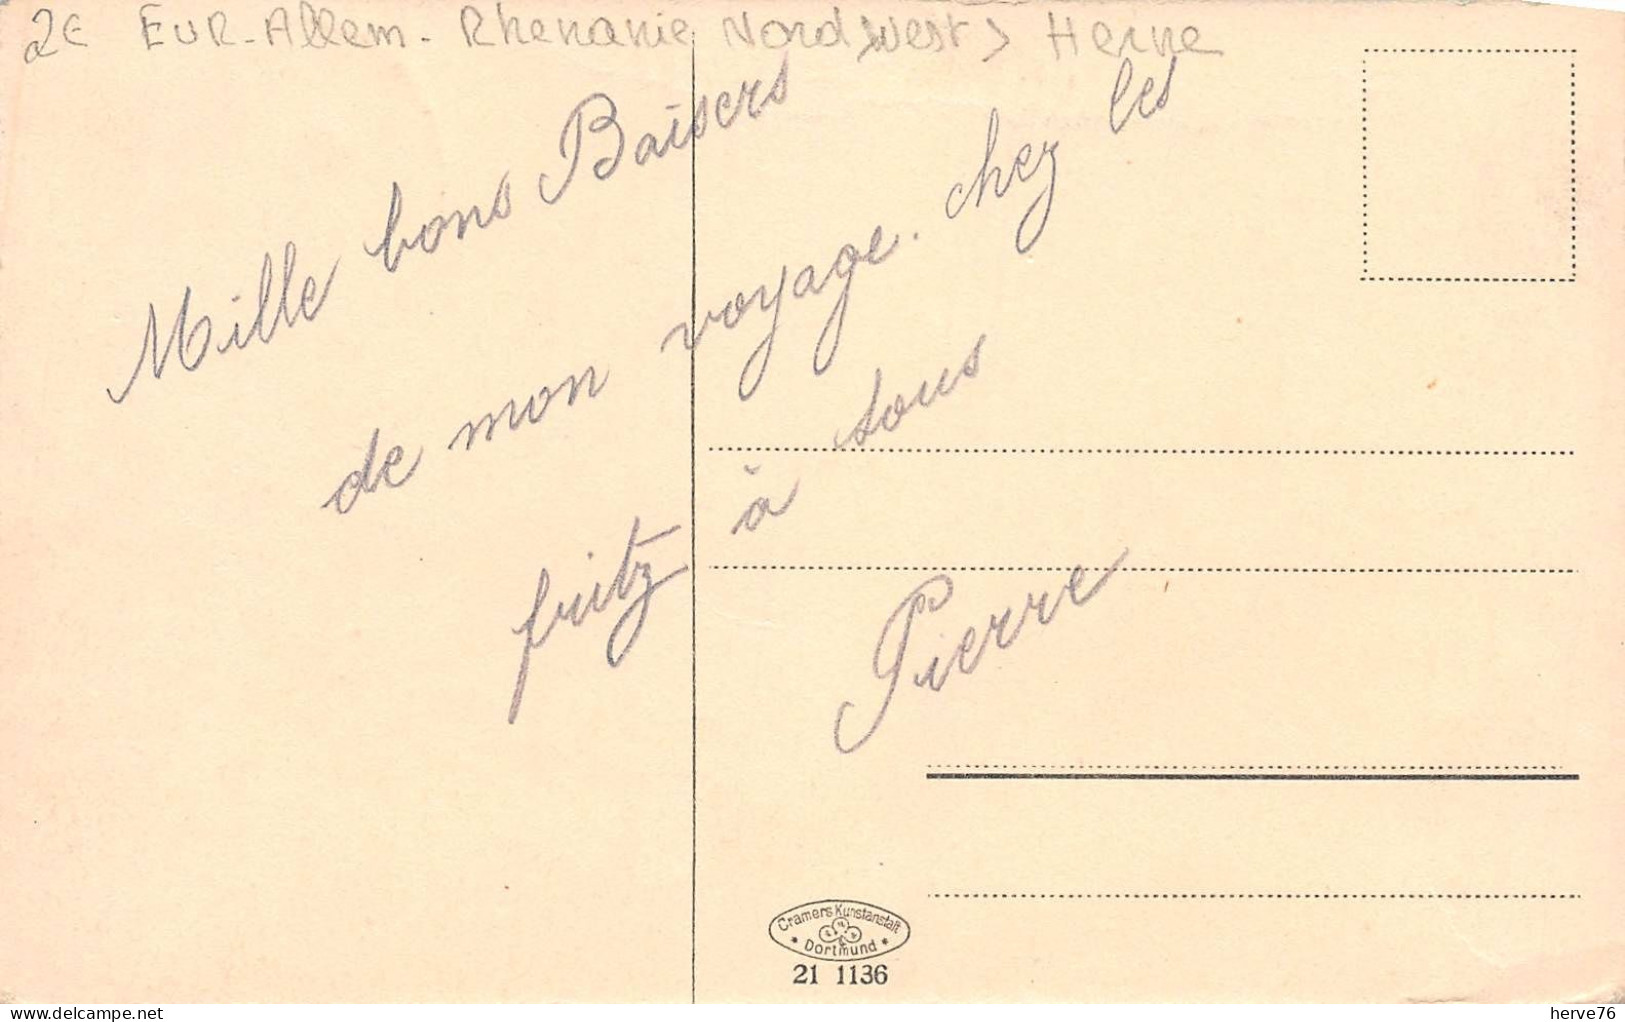 2€ EUR-Allem. Rhenanie Nord West > Herne
Mille bons Baisers
de mon voyage. chez les
fritz à tous
Pierre
Cramers Kunstanstalt
* Dortmund *
21 1136
herve76